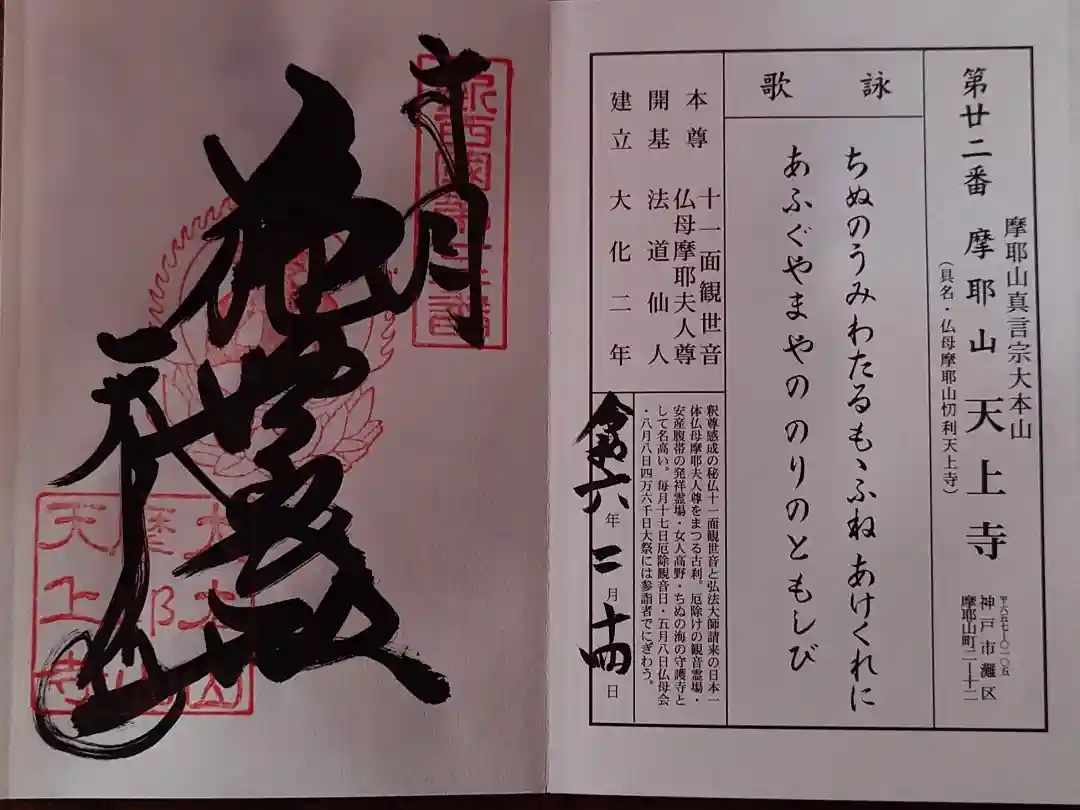 摩耶山真言宗大本山
第廿二番 摩耶山 天上寺
（具名・仏母摩耶山忉利天上寺）
〒六五七-〇一〇五
神戸市灘区
摩耶山町二-十二
詠歌
ちぬのうみわたるもゝふね あけくれに
あふぐやまやの のりのともしび
本尊 十一面観世音
仏母摩耶夫人尊
開基 法道仙人
建立 大化二年
釈尊感成の秘仏十一面観世音と弘法大師請来の日本一
体仏母摩耶夫人尊をまつる古刹。厄除けの観音霊場・
安産腹帯の発祥霊場・女人高野・ちぬの海の守護寺と
して名高い。毎月十七日厄除観音日・五月八日仏母会
・八月八日四万六千日大祭には参詣者でにぎわう。
令和六年二月十四日
新西國第廿二番
大本山
摩耶山
天上寺